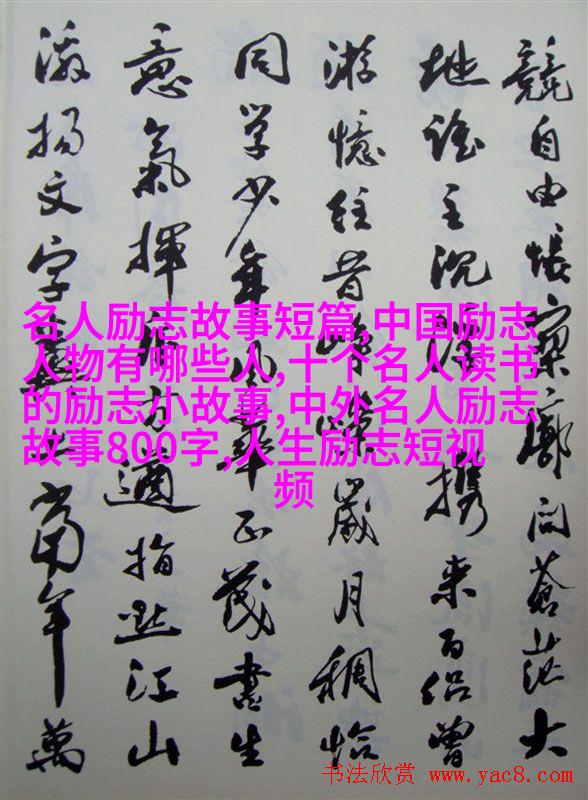 競自由悵寥廓问蒼茫大
地谁主沉浮携来百侣曾
游憶往昔峥嵘歲月稠恰
同学少年風華正茂書生
意氣揮斥方遒指點江山
激揚文字糞土當年萬
名人励志故事短篇,中国励志
人物有哪些人,十个名人读书
的励志小故事,中外名人励志
故事800字,人生励志短视
频
书法欣赏 www.yac8.com